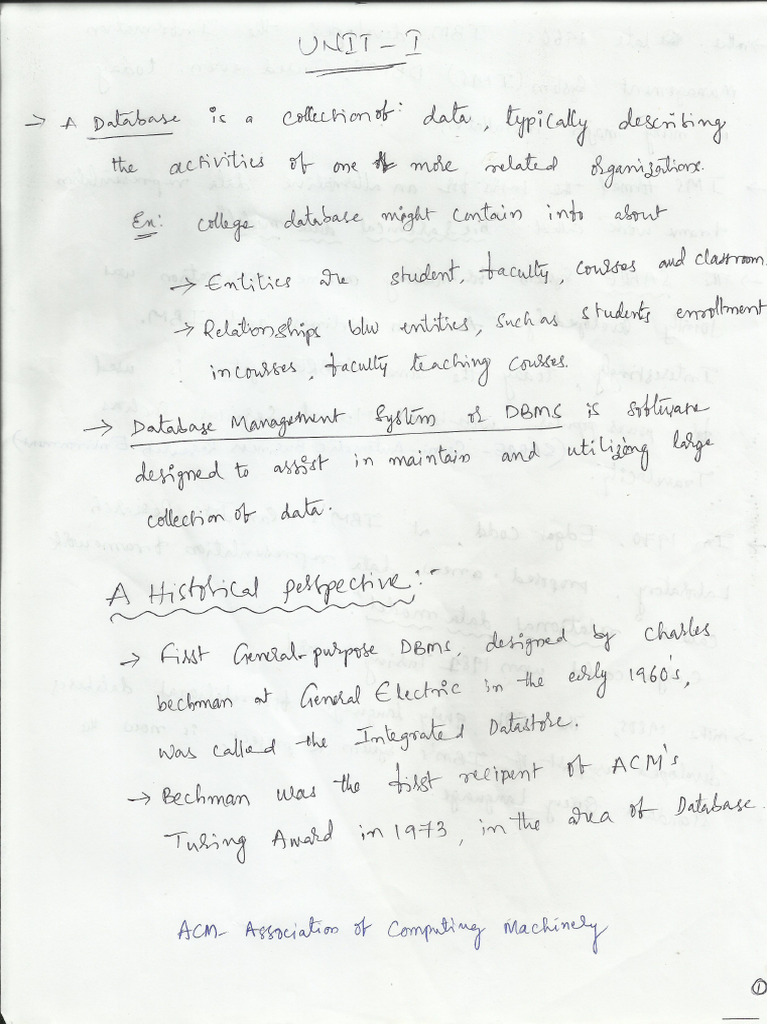 UNIT-I
→ A Database is a collection of data, typically describing
the activities of one or more related organizations.
Ex: college database might contain info about
→ Entities are student, faculty, courses and classroom
→ Relationships b/w entities, such as students enrollment
in courses, faculty teaching courses.
→ Database Management System or DBMS is software
designed to assist in maintain and utilizing large
collection of data.
A Historical perspective:-
→ First General-purpose DBMS, designed by charles
bechman at General Electric in the early 1960's,
was called the Integrated Datastore.
→ Bechman was the first recipent of ACM's
Turing Award in 1973, in the area of Database.
ACM- Association of Computing Machinery
1